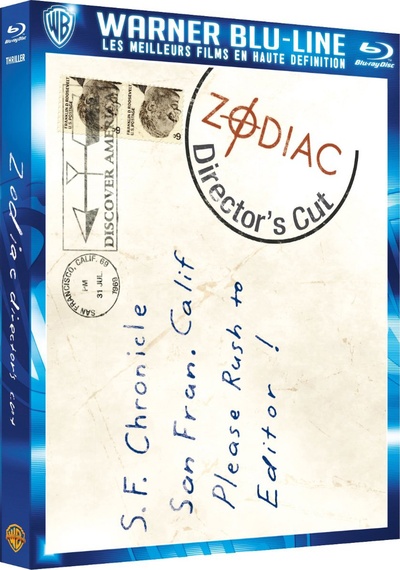 WB
WARNER BLU-LINE
LES MEILLEURS FILMS EN HAUTE DÉFINITION
Blu-ray Disc
Blu-ray Disc
THRILLER
Zodiac director's cut
FRANKLIN D. ROOSEVELT
U.S. POSTAGE
6¢
FRANKLIN D. ROOSEVELT
U.S. POSTAGE
6¢
DISCOVER AMERICA
SAN FRANCISCO, CALIF. 69
PM
31 JUL
1969
ZODIAC
Director's Cut
S.F. Chronicle
San Fran. Calif
Please Rush to
Editor!